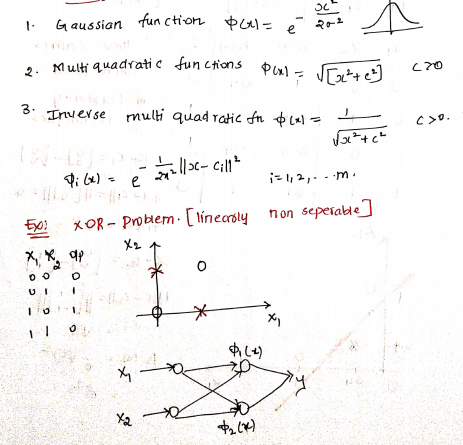 1. Gaussian function φ(x) = e^-x²/2σ²
2. Multi quadratic functions φ(x) = √[x²+c²] c>0
3. Inverse multi quadratic fn φ(x) = 1/√x²+c² c>0.
φi(x) = e^-1/2σ²||x-ci||² i=1,2,...m.
Ex: XOR-Problem. [linearly non seperable]
X1 X2 op
0 0 0
0 1 1
1 0 1
1 1 0
X2
0
X1
φ1(x)
X1
y
X2
φ2(x)